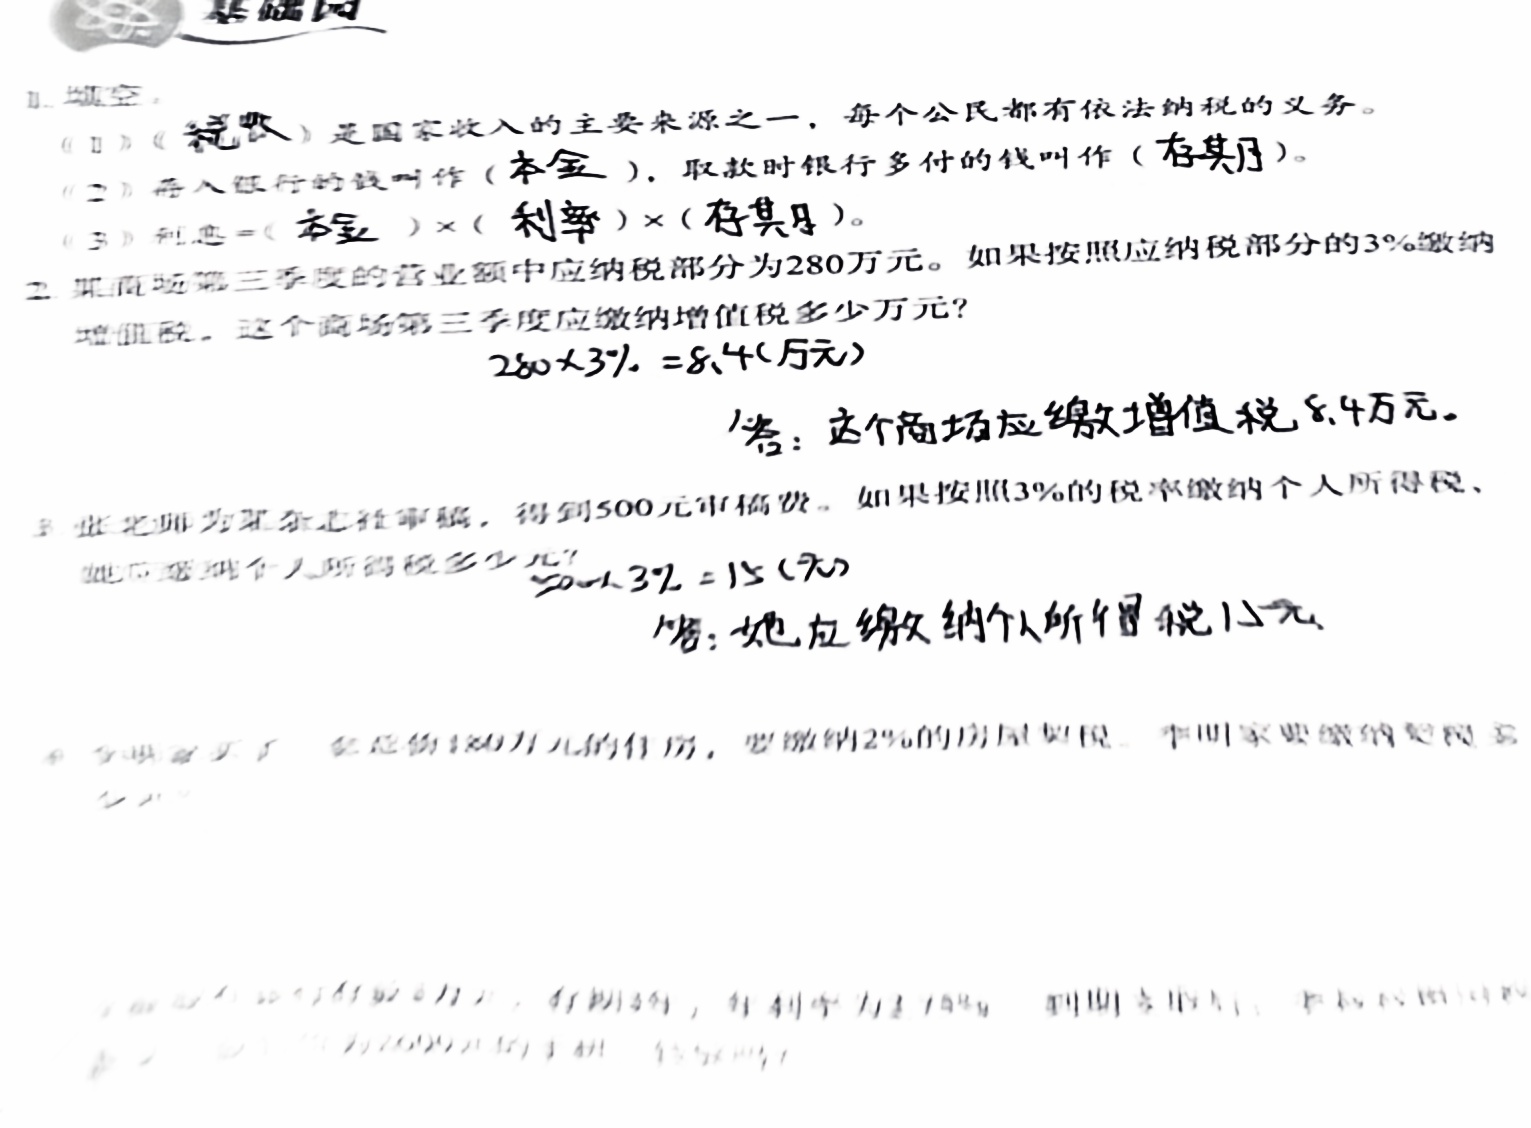 基础园
1. 填空。
(1)(税收)是国家收入的主要来源之一，每个公民都有依法纳税的义务。
(2)存入银行的钱叫作(本金)，取款时银行多付的钱叫作(存其月)。
(3)利息=(本金)×(利率)×(存其月)。
2. 某商场第三季度的营业额中应纳税部分为280万元。如果按照应纳税部分的3%缴纳
增值税，这个商场第三季度应缴纳增值税多少万元?
280×3%=8.4(万元)
答：这个商场应缴增值税8.4万元。
3. 张老师为某杂志社审稿，得到500元审稿费。如果按照3%的税率缴纳个人所得税，
她应缴纳个人所得税多少元?
500×3%=15(元)
答：她应缴纳个人所得税15元
的住房，要缴纳2%的房屋契税。李明家要缴纳契税多
少元?
存期3年，年利率为 到期支取时，